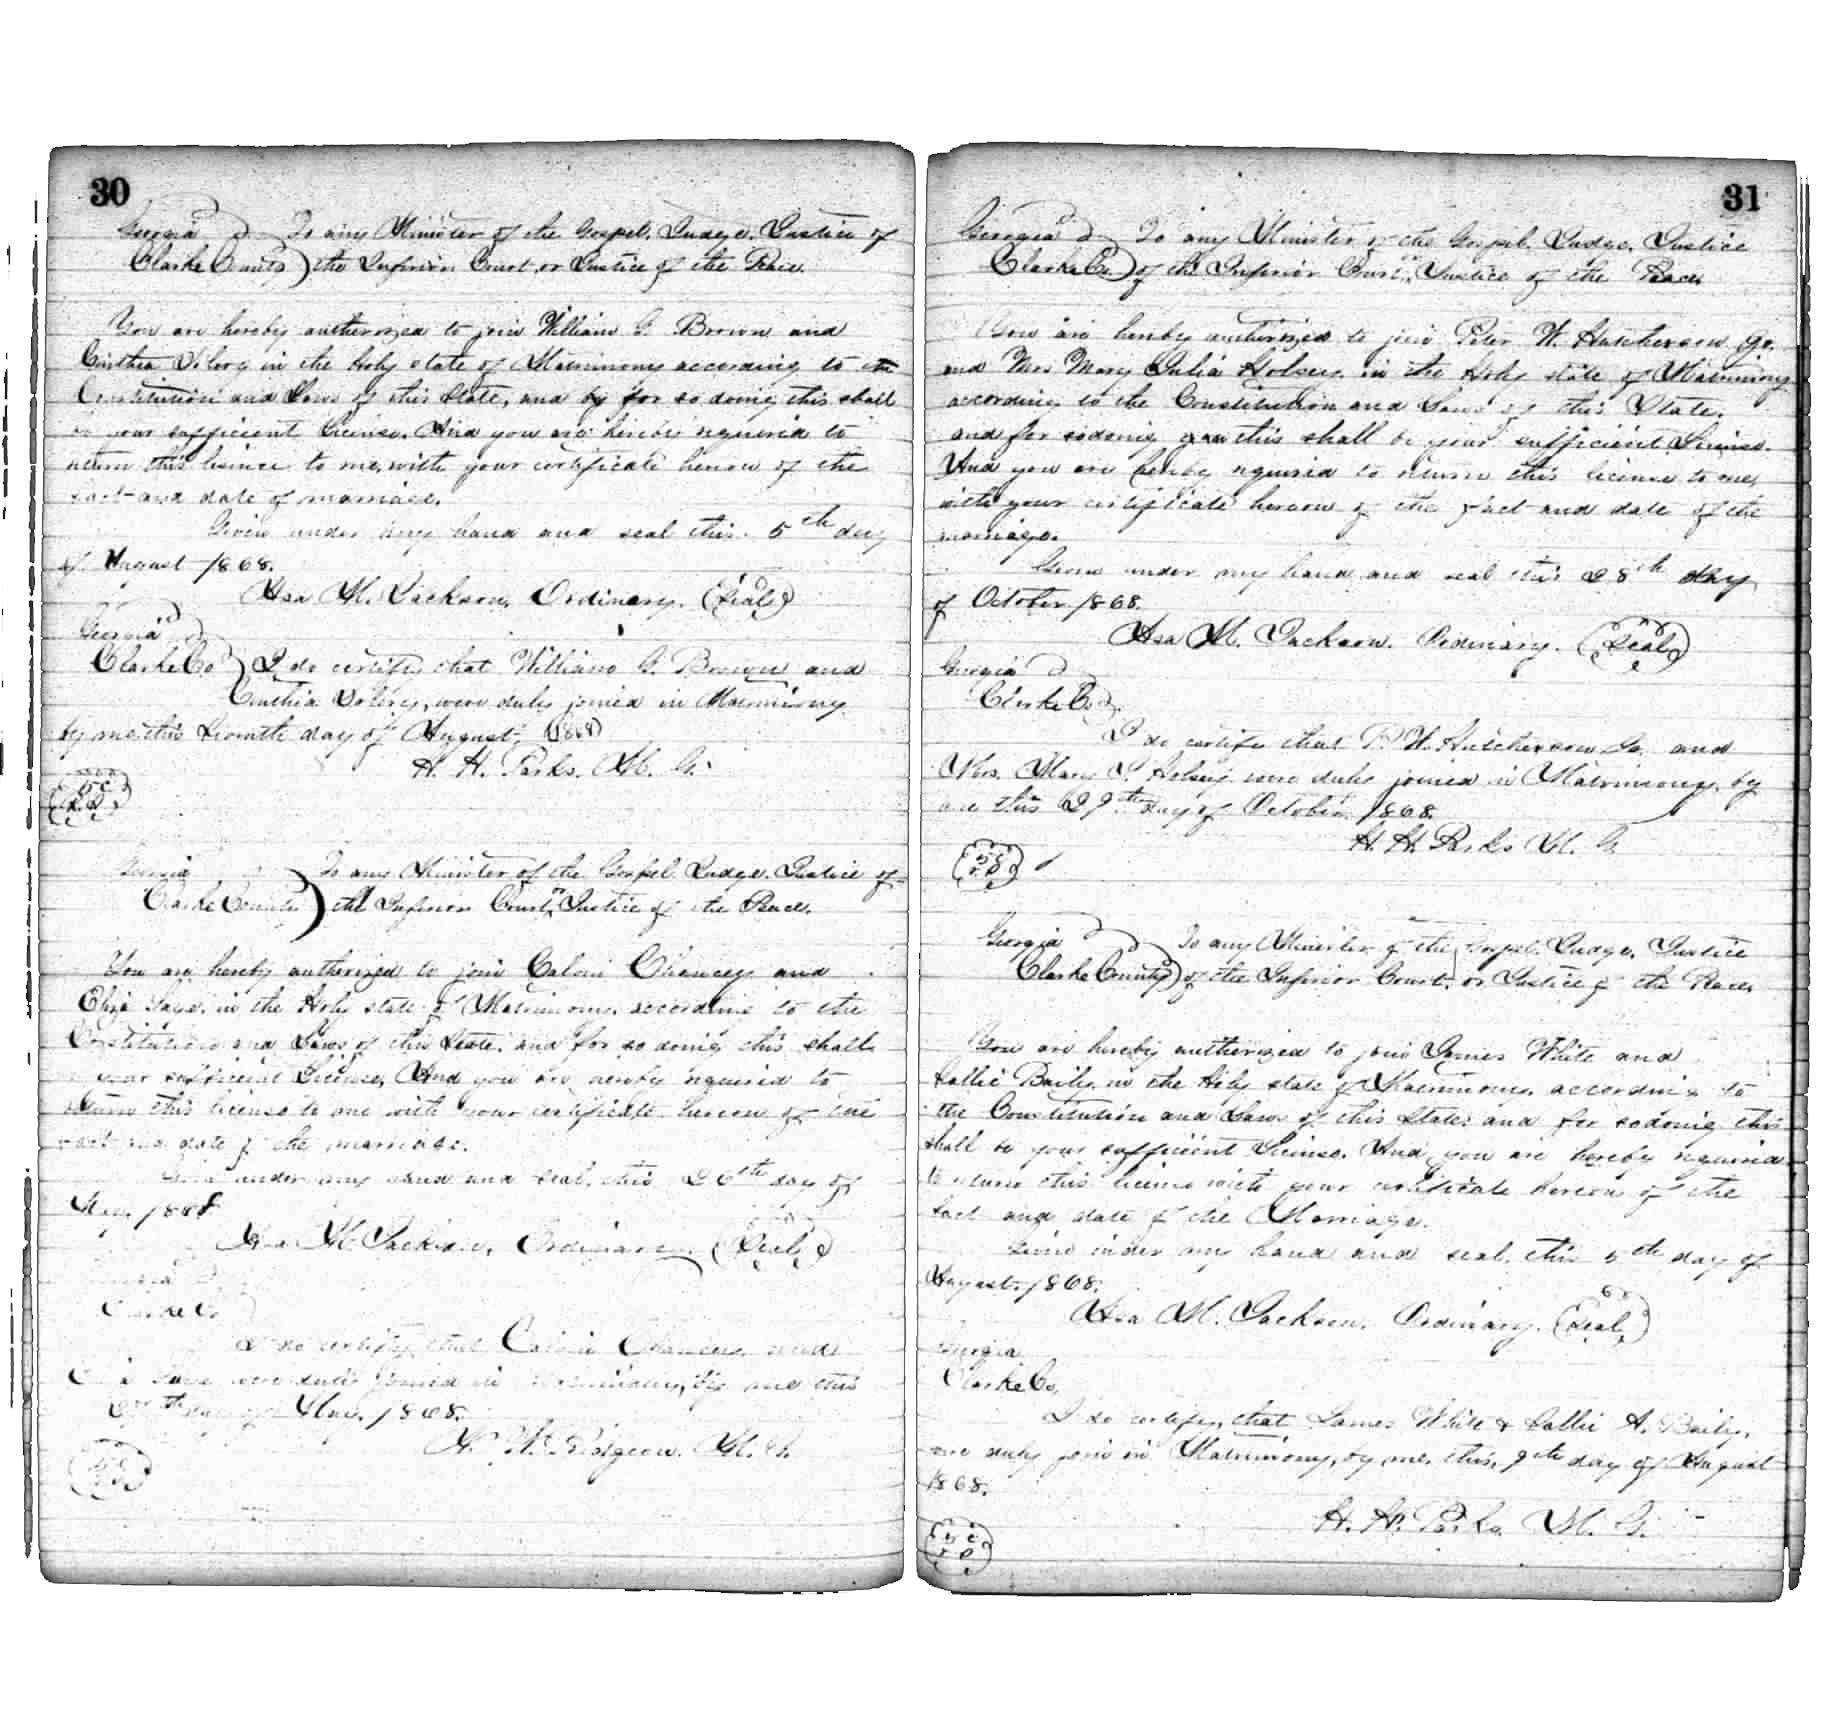 30
Georgia To any Minister of the Gospel, Judge, Justice of
Clarke County the Inferior Court or Justice of the Peace.
You are hereby authorized to join William G. Brown and
Cinthia in the holy state of Matrimony according to the
Constitution and Laws of this State, and by for so doing this shall
be your sufficient license. And you are hereby required to
return this lisince to me, with your certificate hereon of the
fact and date of marriage.
Given under my hand and seal this 5th day
of August 1868.
Asa M. Jackson, Ordinary. (Seal)
Georgia
Clarke Co I do certify that William G. Brown and
Cinthia were duly joined in Matrimony
by me this day of August, 1868
H. H. Parks, M. G.
Georgia To any Minister of the Gospel Judge, Justice of
Clarke County the Inferior Court, or Justice of the Peace.
You are hereby authorized to join Calvin Chancey and
Eliza in the Holy state of Matrimony, according to the
Constitution and Laws of this State, and for so doing this shall
your sufficient License, And you are hereby required to
return this license to me with your certificate hereon of the
fact and date of the marriage.
Given under my hand and seal, this 26th day of
May, 1868
Asa M. Jackson, Ordinary. (Seal)
Georgia
Clarke Co
I do certify that Calvin Chancey and
were duly joined in Matrimony, by me this
day of May, 1868.
M. G.
31
Georgia To any Minister of the Gospel, Judge, Justice
Clarke Co of the Inferior Court or Justice of the Peace.
You are hereby authorized to join Peter W. Hutcherson Jr.
and Mrs Mary Julia Holsey in the Holy state of Matrimony
according to the Constitution and Laws of this State,
and for sodoing this shall be your sufficient License.
And you are hereby required to return this license to me,
with your certificate hereon of the fact and date of the
marriage.
Given under my hand and seal this 28th day
of October 1868.
Asa M. Jackson. Ordinary. (Seal)
Georgia
Clarke Co
I do certify that P. W. Hutcherson Jr. and
Mrs. Mary J. Holsey were duly joined in Matrimony, by
me this 29th day of October 1868.
H. H. Parks M. G.
Georgia To any Minister of the Gospel Judge, Justice
Clarke County of the Inferior Court, or Justice of the Peace,
You are hereby authorized to join James White and
Sallie Baily, in the Holy state of Matrimony, according to
the Constitution and Laws of this State, and for sodoing this
shall be your sufficient License. And you are hereby required
to return this license with your certificate hereon of the
fact and date of the Marriage.
Given under my hand and seal, this 5th day of
August, 1868.
Asa M. Jackson, Ordinary. (Seal)
Georgia
Clarke Co,
I do certify, that James White & Sallie A. Baily,
duly join in Matrimony, by me, this, 9th day of August
1868.
H. H. Parks, M. G.